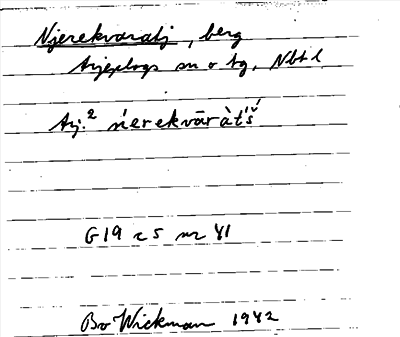 Njerekvaratj, berg
Arjeplogs sn o tg, Nbtl
Arj.² ńerekvāràt́š́
G19 c 5 nr 41
Bo Wickman 1942